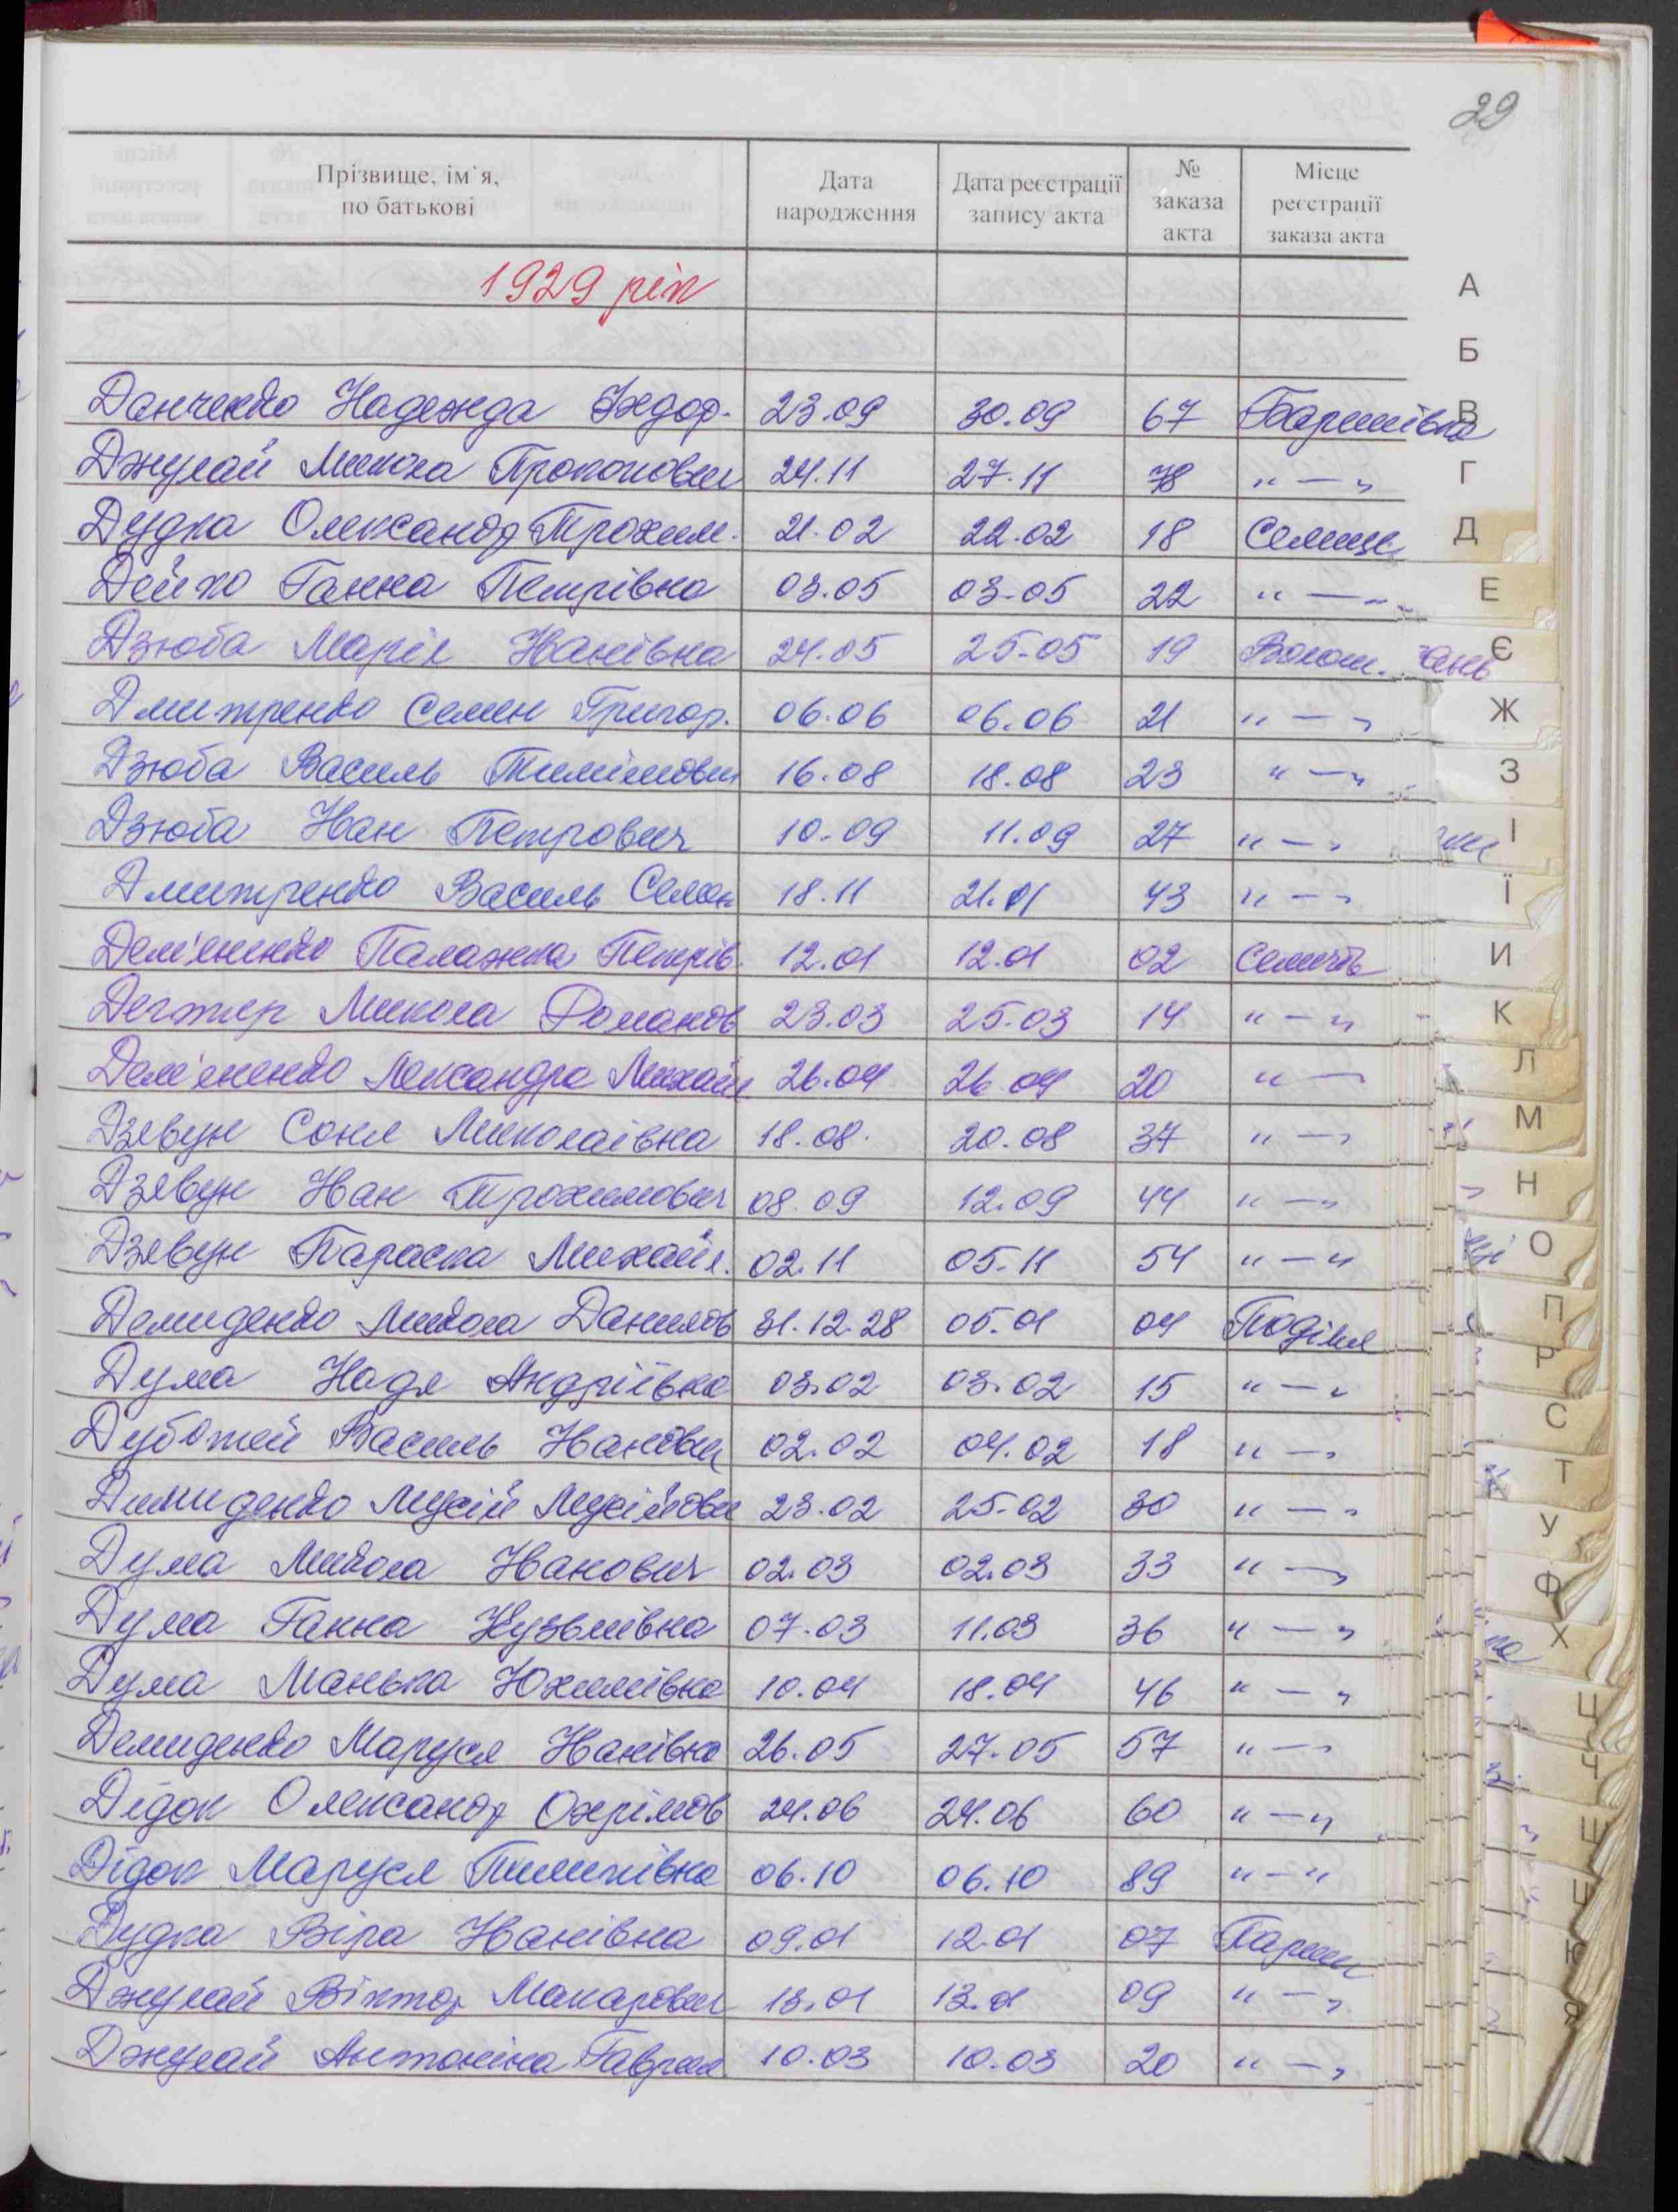 29
Прізвище, ім'я, по батькові | Дата народження | Дата реєстрації запису акта | № заказа акта | Місце реєстрації заказа акта
1929 рік
Данченко Надежда Федор. 23.09 30.09 67 Баришівка
Джулай Микола Прокопович 24.11 27.11 78 " — "
Дудка Олександр Трохим. 21.02 22.02 18 Селище
Дейко Ганна Петрівна 03.05 03.05 22 " — "
Дзюба Марія Іванівна 24.05 25.05 19 Волош.
Дмитренко Семен Григор. 06.06 06.06 21 " — "
Дзюба Василь Тимішович 16.08 18.08 23 " — "
Дзюба Іван Петрович 10.09 11.09 27 " — "
Дмитренко Василь Семен 18.11 21.11 43 " — "
Дем'яненко Палажка Петрів. 12.01 12.01 02
Дегтяр Микола Романов 23.03 25.03 14 " — "
Дем'яненко Лександра Михайл 26.04 26.04 20 " —
Дзевун Соня Миколаївна 18.08. 20.08 37 " — "
Дзевун Іван Трохимович 08.09 12.09 44 " — "
Дзевун Параска Михайл. 02.11 05.11 54 " — "
Демиденко Микола Данилов 31.12.28 05.01 04 Поділля
Дума Надя Андріївна 03.02 03.02 15 " — "
Василь Іванович 02.02 04.02 18 " — "
Димиденко Мусій Мусійович 23.02 25.02 30 " — "
Дума Микола Іванович 02.03 02.03 33 " — "
Дума Ганна Кузьмівна 07.03 11.03 36 " — "
Дума Манька Юхимівна 10.04 18.04 46 " — "
Демиденко Маруся Іванівна 26.05 27.05 57 " — "
Дідок Олександр Охрімов 24.06 24.06 60 " — "
Дідок Маруся Пилипівна 06.10 06.10 89 " — "
Дудка Віра Іванівна 09.01 12.01 07 Париш
Джулай Віктор Макарович 13.01 13.01 09 " — "
Джулай Антоніна Гаврил 10.03 10.03 20 " — "
А
Б
В
Г
Д
Е
Є
Ж
З
І
Ї
И
К
Л
М
Н
О
П
Р
С
Т
У
Ф
Х
Ц
Ч
Ш
Щ
Ю
Я